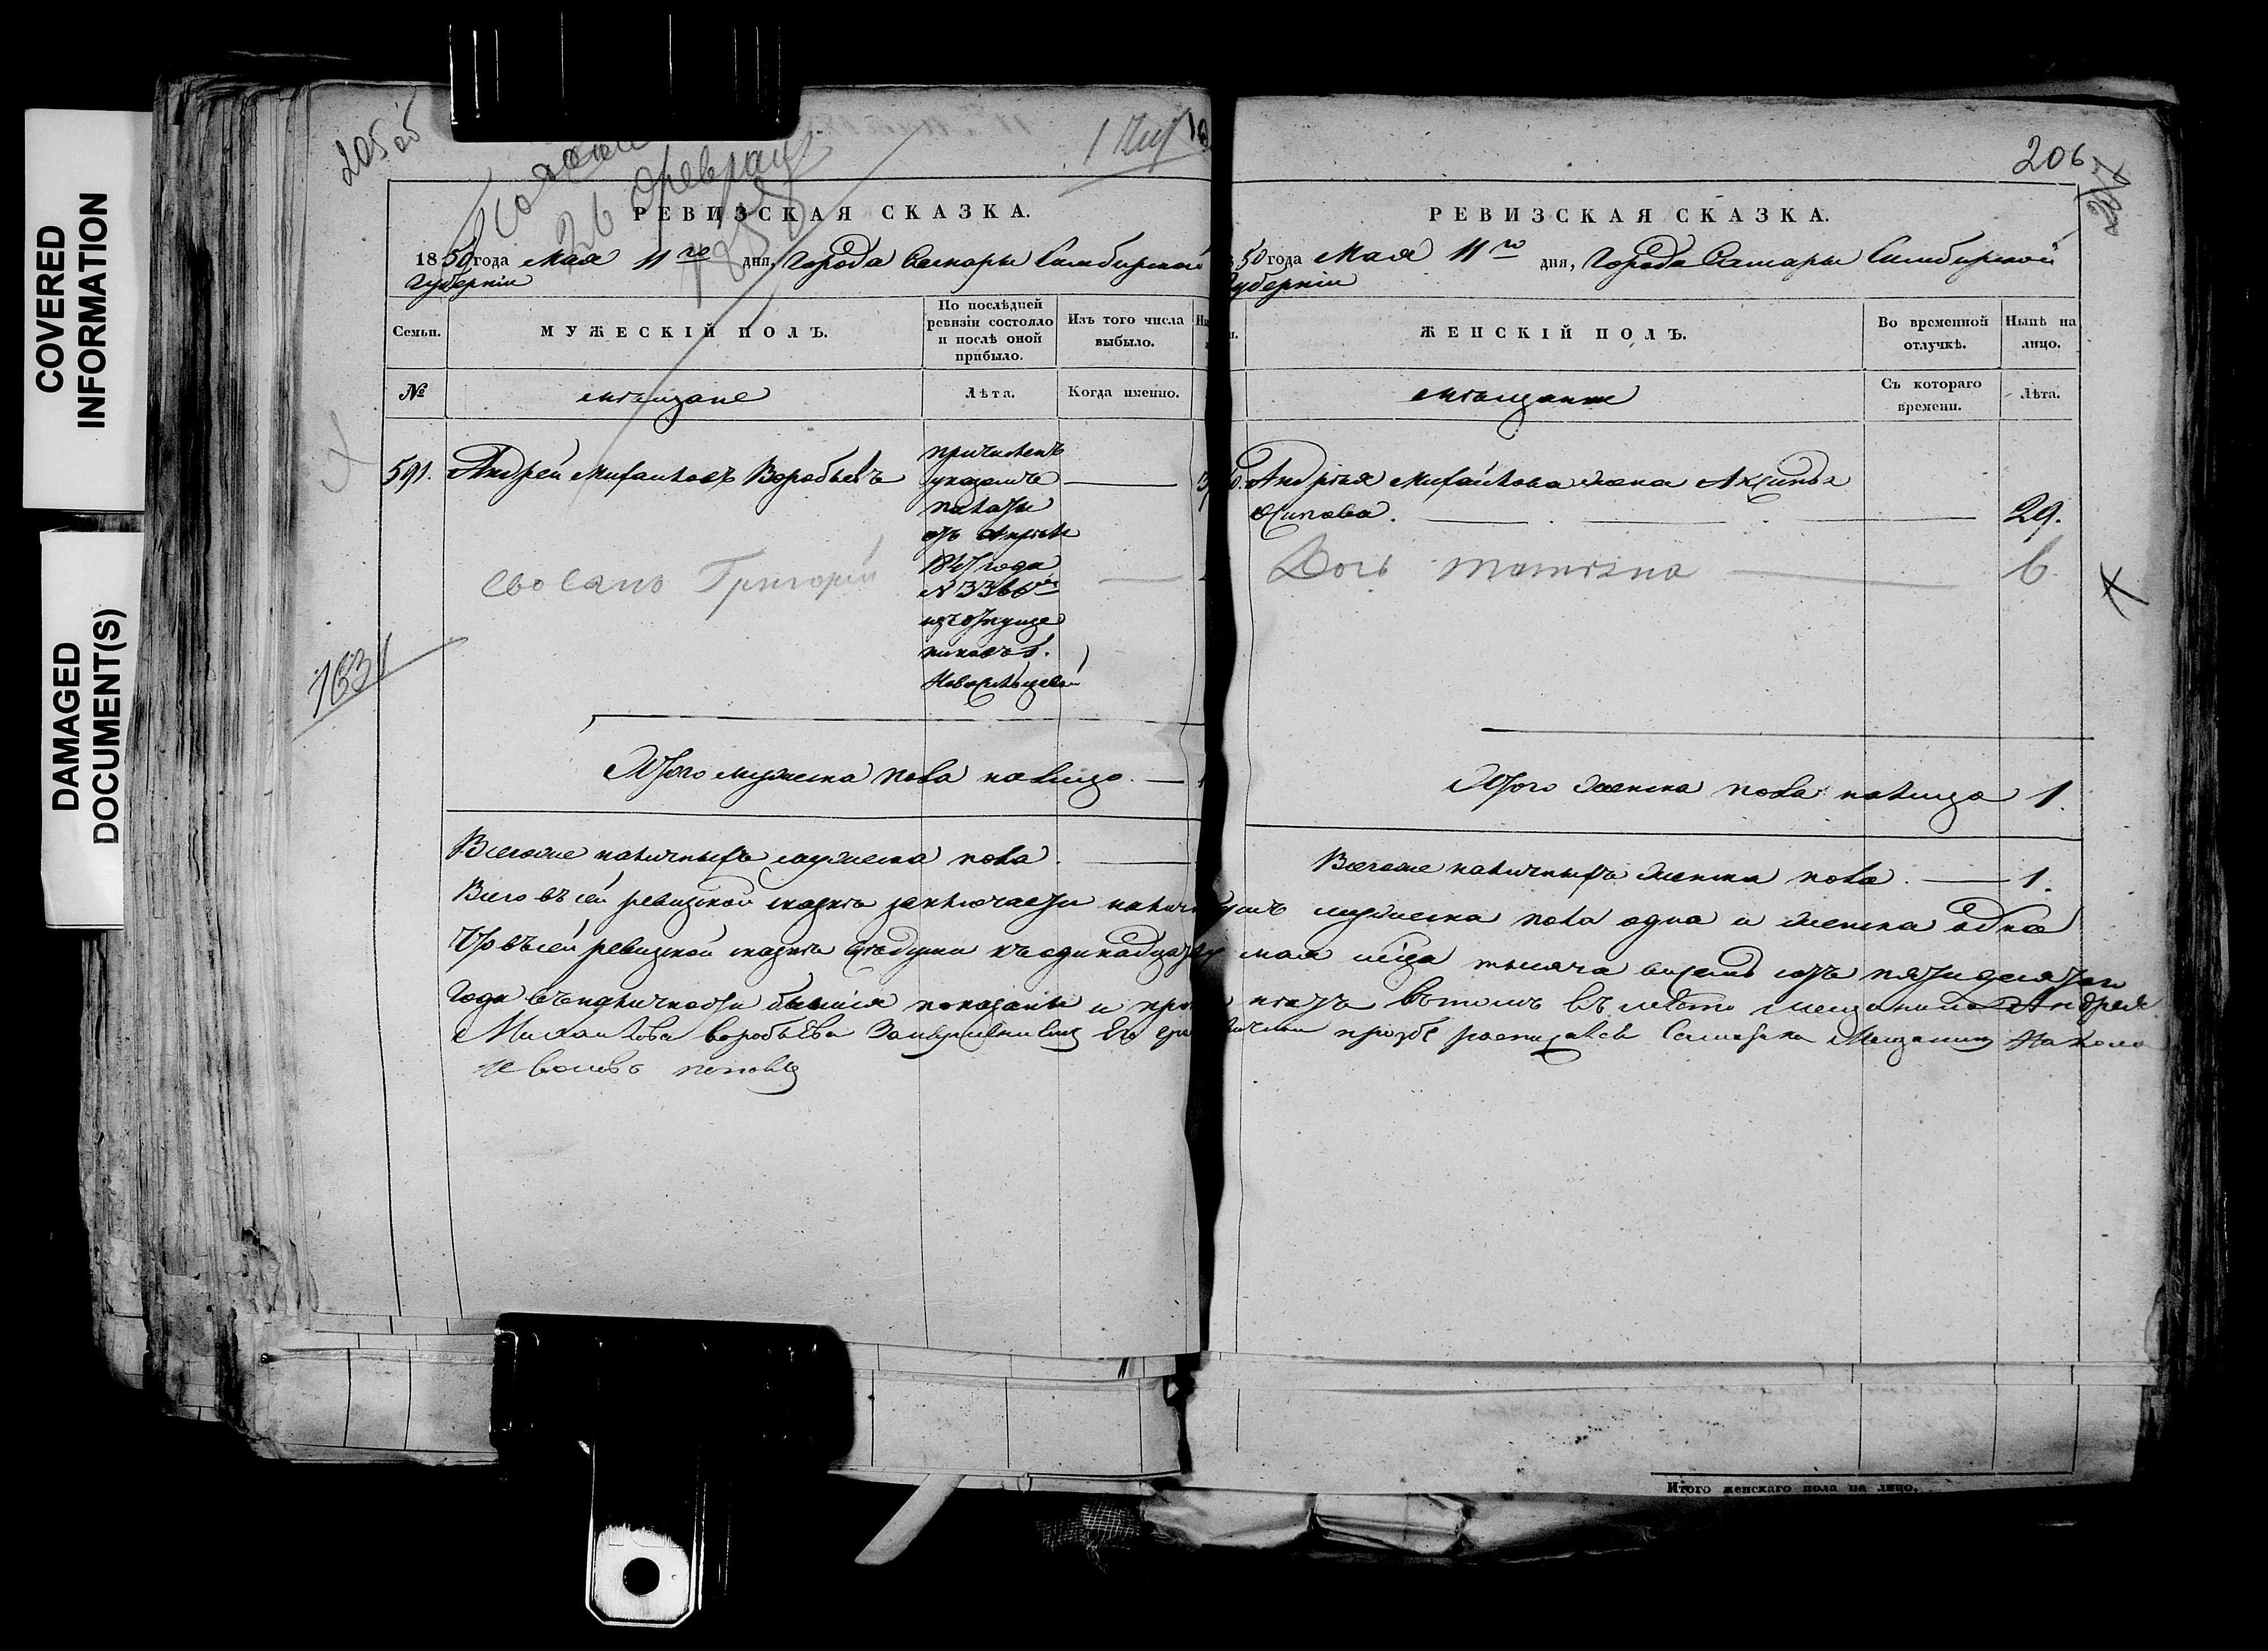 COVERED
INFORMATION
DAMAGED
DOCUMENT(S)
205 об
26 Февраля
1631
РЕВИЗСКАЯ СКАЗКА.
1850 года Мая 11го дня, Города Самары Симбирской
Губерніи
Семьи.
МУЖЕСКІЙ ПОЛЪ.
По послѣдней
ревизіи состояло
и послѣ оной
прибыло.
Изъ того числа
выбыло.
№
мѣщане
Лѣта.
Когда именно.
591. Андрей Михайловъ Воробьевъ
причисленъ
указомъ
палаты
отъ Апрѣля
1847 года
№ 3366
изъ отпуще
никовъ г.
Новосильцевой
Его Сынъ Григорій
Итого мужеска пола налицо — 1
Всего же наличныхъ мужеска пола
206
РЕВИЗСКАЯ СКАЗКА.
50 года Мая 11го дня, Города Самары Симбирской
Губерніи
ЖЕНСКІЙ ПОЛЪ.
Во временной
отлучкѣ.
Нынѣ на
лицо.
мѣщанки
Съ котораго
времени.
Лѣта.
Андрея Михайлова жена Аксинья
Осипова. 29.
Дочь Татьяна 6
Итого женска пола налицо 1.
Всего же наличныхъ женска пола. — 1.
Всего въ сей ревизской сказкѣ заключается наличныхъ мужеска пола одна и женска одна
Что въ сей ревизской сказкѣ всѣ души къ одинадцатому мая м-ца тысяча восемь сотъ пятидесятаго
Года въ наличности бывшія показаны и прописныхъ нѣтъ въ томъ вмѣсто мещанина Андрея
Михайлова воробьева За неумениемъ Его грамоте по личной прозбе росписался Самарской Мещанинъ
поповъ
Итого женскаго пола на лицо.